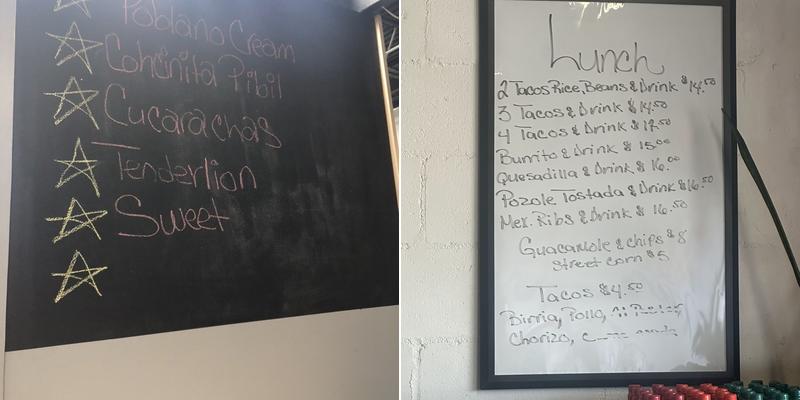 Poblano Cream
Cohcinita Pibil
Cucarachas
Tenderlion
Sweet
Lunch
2 Tacos Rice, Beans & Drink $14.50
3 Tacos & Drink $14.50
4 Tacos & Drink $
Burrito & Drink $ 15.00
Quesadilla & Drink $ 16.00
Pozole Tostada & Drink $16.50
Mex. Ribs & Drink $ 16.50
Guacamole & chips $8
Street corn $5
Tacos $4.50
Birria, Pollo, Al Pastor,
Chorizo,